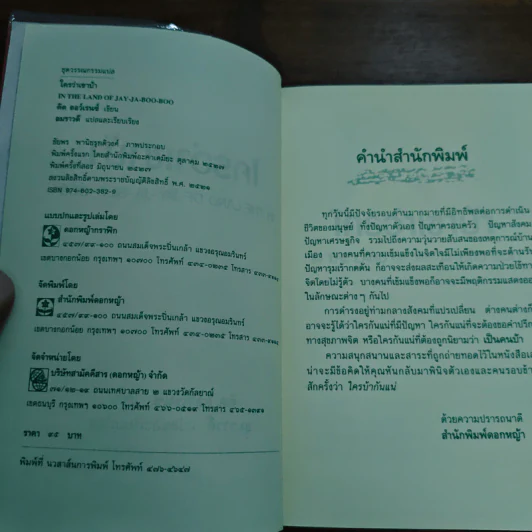 ชุดวรรณกรรมแปล
ใครว่าเขาบ้า
IN THE LAND OF JAY-JA-BOO-BOO
ดิค ฮอว์เรนซ์ เขียน
อมราวดี แปลและเรียบเรียง
ชัยพร พานิชรุทติวงศ์ ภาพประกอบ
พิมพ์ครั้งแรก โดยสำนักพิมพ์อะคาเดมีอะ ตุลาคม ๒๕๒๗
พิมพ์ครั้งที่สอง มิถุนายน ๒๕๒๗
สงวนลิขสิทธิ์ตามพระราชบัญญัติลิขสิทธิ์ พ.ศ. ๒๕๒๑
ISBN 974-602-392-9
แบบปกและรูปเล่มโดย
ดอกหญ้ากราฟิก
๔๕๗/๙๙-๑๐๐ ถนนสมเด็จพระปิ่นเกล้า แขวงอรุณอมรินทร์
เขตบางกอกน้อย กรุงเทพฯ ๑๐๗๐๐ โทรศัพท์
จัดพิมพ์โดย
สำนักพิมพ์ดอกหญ้า
๔๕๗/๙๙-๑๐๐ ถนนสมเด็จพระปิ่นเกล้า แขวงอรุณอมรินทร์
เขตบางกอกน้อย กรุงเทพฯ ๑๐๗๐๐ โทรศัพท์
จัดจำหน่ายโดย
บริษัทสามัคคีสาร (ดอกหญ้า) จำกัด
๓๑/๑๒-๑๓ ถนนเทศบาลสาย ๒ แขวงวัดกัลยาณ์
เขตธนบุรี กรุงเทพฯ ๑๐๖๐๐ โทรศัพท์
ราคา ๙๕ บาท
พิมพ์ที่ นวสาส์นการพิมพ์ โทรศัพท์ ๔๗๖-๔๖๔๗
คำนำสำนักพิมพ์
ทุกวันนี้มีปัจจัยรอบด้านมากมายที่มีอิทธิพลต่อการดำเนิน
ชีวิตของมนุษย์ ทั้งปัญหาตัวเอง ปัญหาครอบครัว ปัญหาสังคม
ปัญหาเศรษฐกิจ รวมไปถึงความวุ่นวายสับสนของเหตุการณ์บ้าน
เมือง บางคนที่ความเข้มแข็งในจิตใจมีไม่เพียงพอที่จะต้านรับ
ปัญหารุมเร้ากดดัน ก็อาจจะส่งผลสะเทือนให้เกิดความป่วยไข้ทาง
จิตโดยไม่รู้ตัว บางคนที่เข้มแข็งพอก็อาจจะมีพฤติกรรมแสดงออก
ในลักษณะต่างๆ กันไป
การดำรงอยู่ท่ามกลางสังคมที่แปรเปลี่ยน ต่างคนต่างก็
อาจจะรู้ได้ว่าใครกันแน่ที่มีปัญหา ใครกันแน่ที่จะต้องขอคำปรึกษา
ทางสุขภาพจิต หรือใครกันแน่ที่ต้องถูกนิยามว่า เป็นคนบ้า
ความสนุกสนานและสาระที่ถูกถ่ายทอดไว้ในหนังสือเล่ม
น่าจะมีข้อคิดให้คุณหันกลับมาพินิจตัวเองและคนรอบข้าง
สักครั้งว่า ใครบ้ากันแน่
ด้วยความปรารถนาดี
สำนักพิมพ์ดอกหญ้า